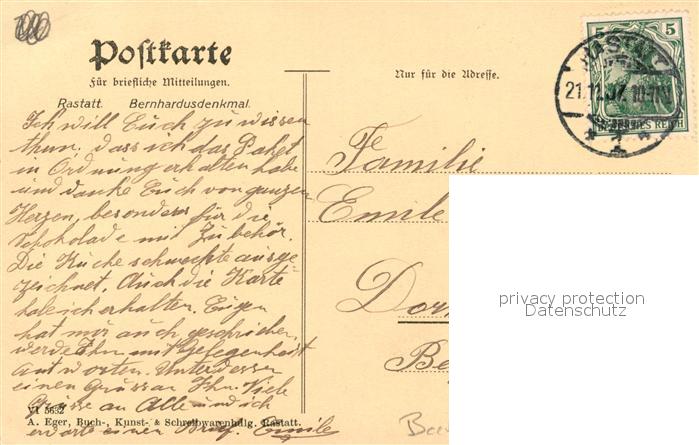 Postkarte
Für briefliche Mitteilungen.
Nur für die Adresse.
Rastatt. Bernhardusdenkmal.
Ich will Euch zu wissen
thun, dass ich das Paket
in Ordnung erhalten habe
und danke Euch von ganzen
Herzen, besonders für die
Schokolade mit Zubehör.
Die Kuche schmeckte ausge
zeichnet. Auch die Karte
habe ich erhalten. Eugen
hat mir auch geschrieben,
werde Ihm mit Gelegenheit
antworten. Unterdessen
einen Gruss an Ihn. Viele
Grüsse an Alle und ich
erwarte einen Brief. Emile
VI 5632
A. Eger, Buch-, Kunst- & Schreibwarenhdlg. Rastatt.
Familie
Emile
Dor
Be
5 5
RASTATT
21.11.07. 10-11V
DEUTSCHES REICH
privacy protection
Datenschutz